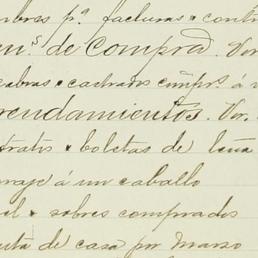 mbres pª facturas y contr
en.s de Comprad. Ver
cabras y cachrans cumpr.s á v
rendamientos. Ver.
tratis y boletas de leña
raje á un caballo
al y sobres comprados
uta de casa por Marzo